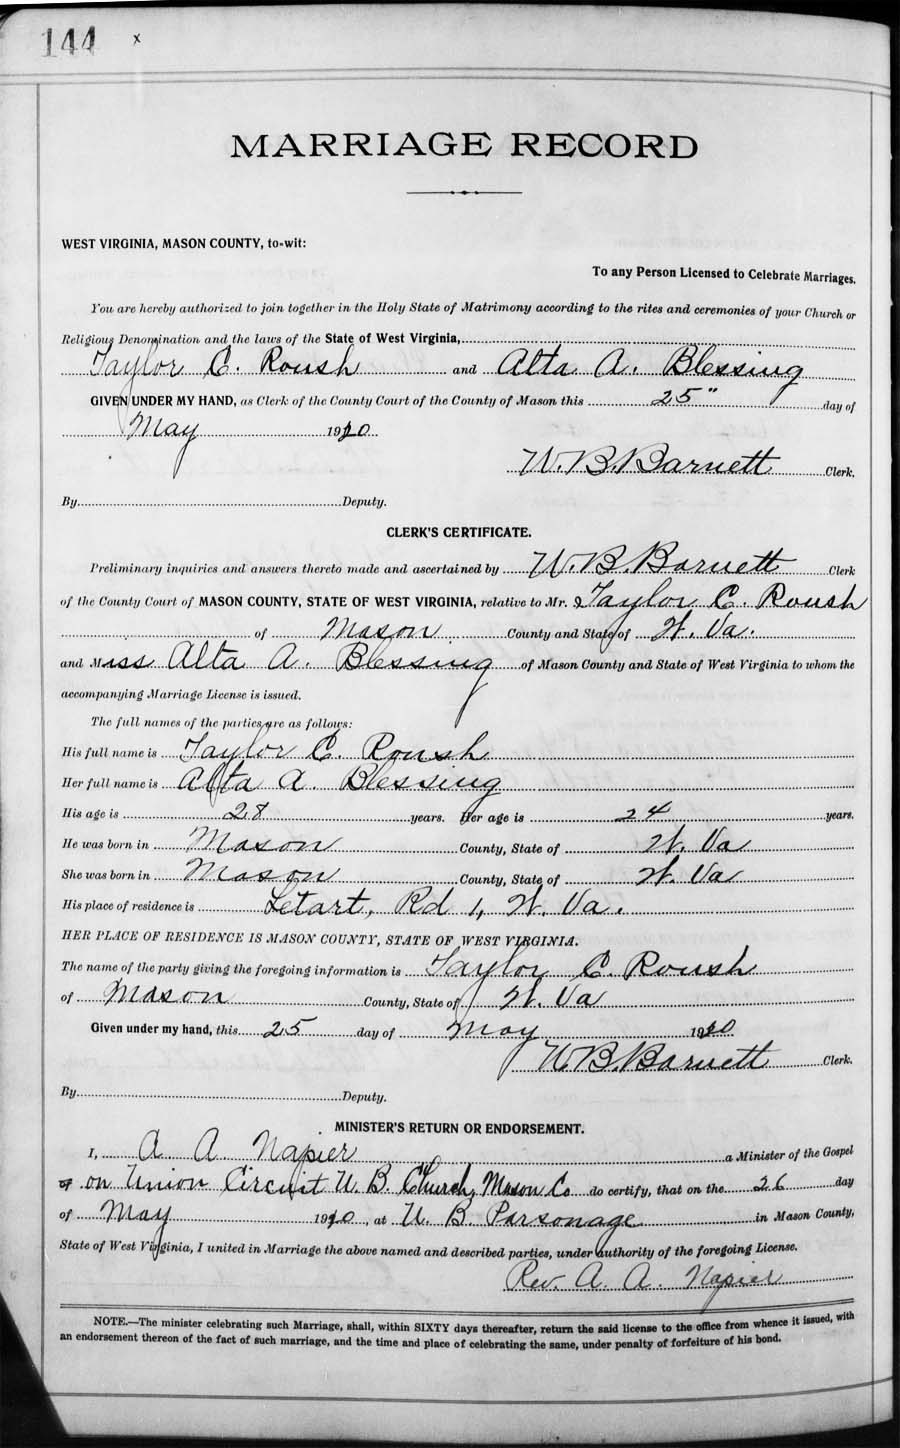 144 x
MARRIAGE RECORD
WEST VIRGINIA, MASON COUNTY, to-wit:
To any Person Licensed to Celebrate Marriages.
You are hereby authorized to join together in the Holy State of Matrimony according to the rites and ceremonies of your Church or
Religious Denomination and the laws of the State of West Virginia,
Taylor C. Roush and Alta A. Blessing
GIVEN UNDER MY HAND, as Clerk of the County Court of the County of Mason this 25" day of
May 1920
W. B. Barnett Clerk.
By Deputy.
CLERK'S CERTIFICATE.
Preliminary inquiries and answers thereto made and ascertained by W. B. Barnett Clerk
of the County Court of MASON COUNTY, STATE OF WEST VIRGINIA, relative to Mr. Taylor C. Roush
of Mason County and State of W. Va.
and Miss Alta A. Blessing of Mason County and State of West Virginia to whom the
accompanying Marriage License is issued.
The full names of the parties are as follows:
His full name is Taylor C. Roush
Her full name is Alta A. Blessing
His age is 28 years. Her age is 24 years.
He was born in Mason County, State of W. Va
She was born in Mason County, State of W. Va
His place of residence is Letart, Rd 1, W. Va.
HER PLACE OF RESIDENCE IS MASON COUNTY, STATE OF WEST VIRGINIA.
The name of the party giving the foregoing information is Taylor C. Roush
of Mason County, State of W. Va
Given under my hand, this 25 day of May 1920
W. B. Barnett Clerk.
By Deputy.
MINISTER'S RETURN OR ENDORSEMENT.
I, A A Napier a Minister of the Gospel
of on Union Circuit U. B. Church, Mason Co do certify, that on the 26 day
of May 1920, at U. B. Parsonage in Mason County,
State of West Virginia, I united in Marriage the above named and described parties, under authority of the foregoing License.
Rev. A. A. Napier
NOTE.—The minister celebrating such Marriage, shall, within SIXTY days thereafter, return the said license to the office from whence it issued, with
an endorsement thereon of the fact of such marriage, and the time and place of celebrating the same, under penalty of forfeiture of his bond.